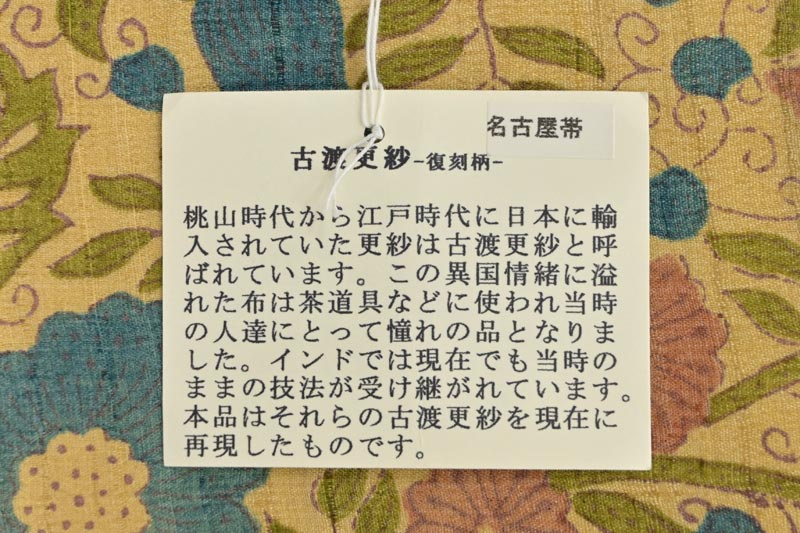 名古屋帯
古渡更紗-復刻柄-
桃山時代から江戸時代に日本に輸
入されていた更紗は古渡更紗と呼
ばれています。この異国情緒に溢
れた布は茶道具などに使われ当時
の人達にとって憧れの品となりま
した。インドでは現在でも当時の
ままの技法が受け継がれています。
本品はそれらの古渡更紗を現在に
再現したものです。